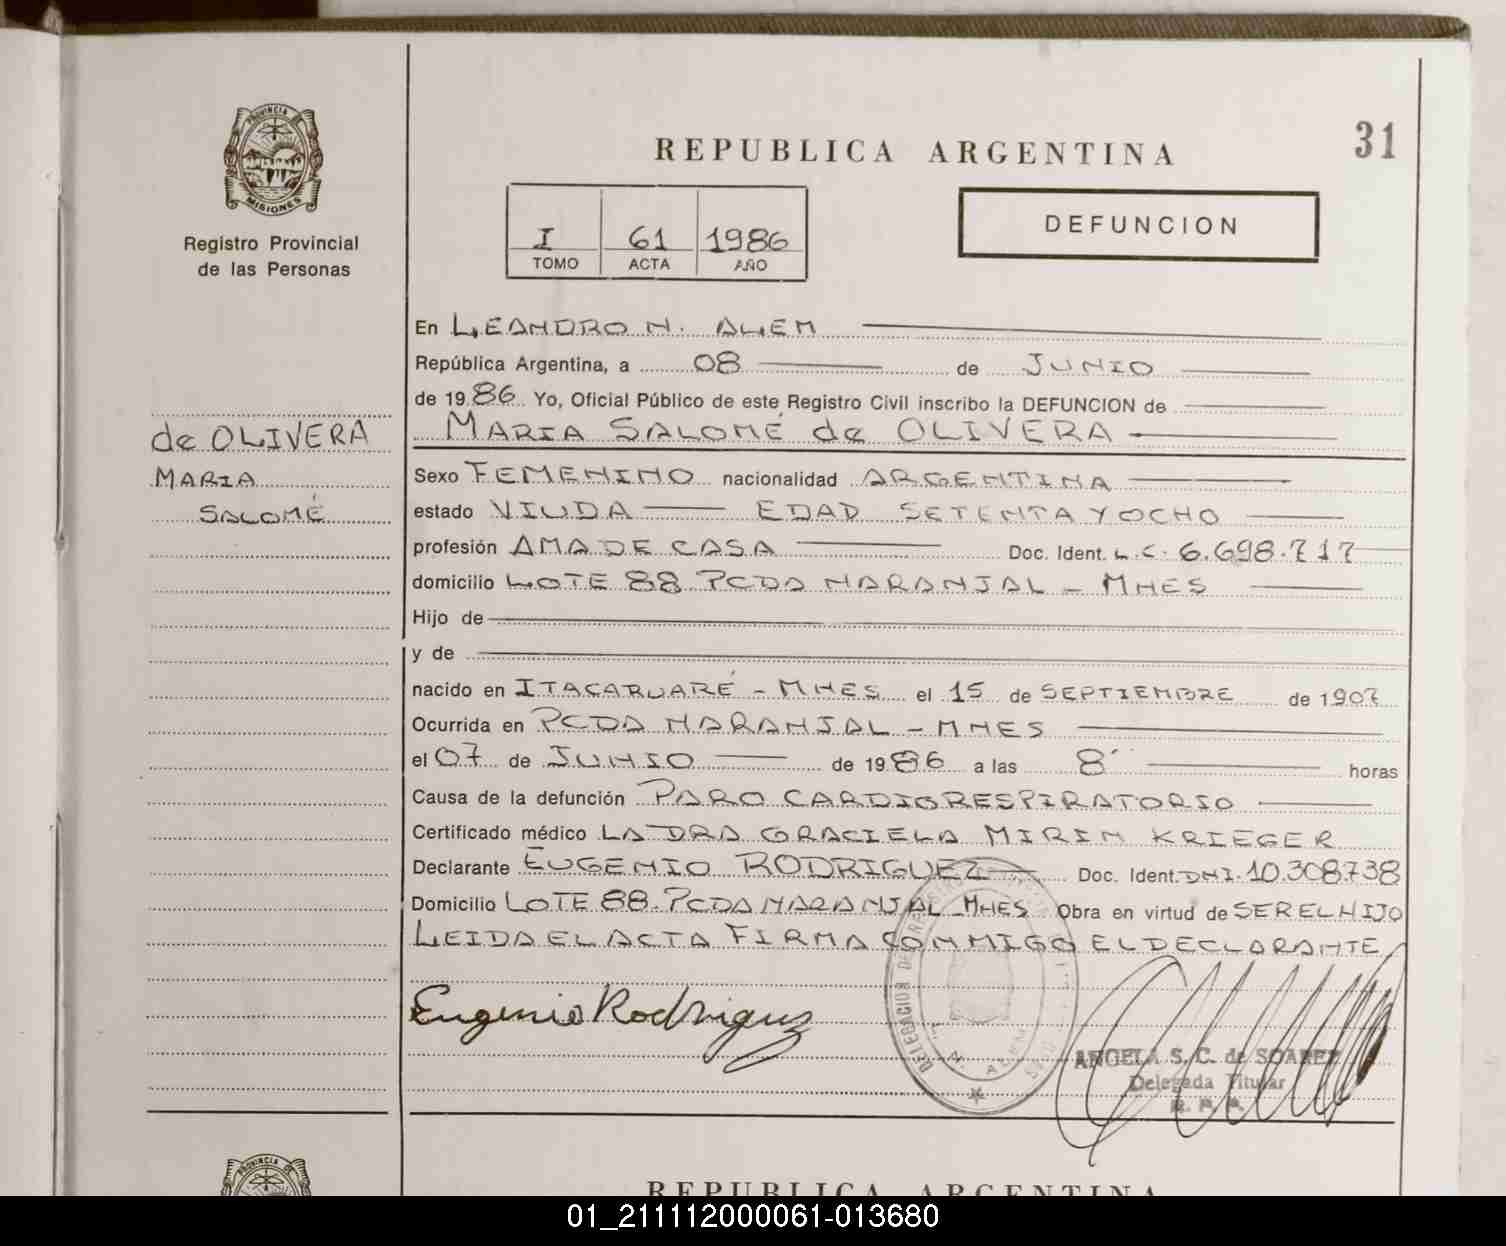 PROVINCIA DE
MISIONES
Registro Provincial
de las Personas
de OLIVERA
MARIA
SALOMÉ
REPUBLICA ARGENTINA
31
I 61 1986
TOMO ACTA AÑO
DEFUNCION
En LEANDRO N. ALEM
República Argentina, a 08 de JUNIO
de 1986 Yo, Oficial Público de este Registro Civil inscribo la DEFUNCION de
MARIA SALOMÉ de OLIVERA
Sexo FEMENINO nacionalidad ARGENTINA
estado VIUDA EDAD SETENTA Y OCHO
profesión AMA DE CASA Doc. Ident. L.C. 6.698.717
domicilio LOTE 88 PCDA NARANJAL - MNES
Hijo de
y de
nacido en ITACARUARÉ - MNES el 15 de SEPTIEMBRE de 1907
Ocurrida en PCDA NARANJAL - MNES
el 07 de JUNIO de 1986 a las 8 horas
Causa de la defunción PARO CARDIORESPIRATORIO
Certificado médico LA DRA GRACIELA MIRIN KRIEGER
Declarante EUGENIO RODRIGUEZ Doc. Ident. DNI. 10.308738
Domicilio LOTE 88. PCDA NARANJAL - MNES Obra en virtud de SER EL HIJO
LEIDA EL ACTA FIRMA CONMIGO EL DECLARANTE
Eugenio Rodriguez
DELEGACION DE
L. N. ALEM
ANGELA S. C. de SOAREZ
Delegada Titular
R. P. P.
PROVINCIA DE
REPUBLICA ARGENTINA
01_211112000061-013680